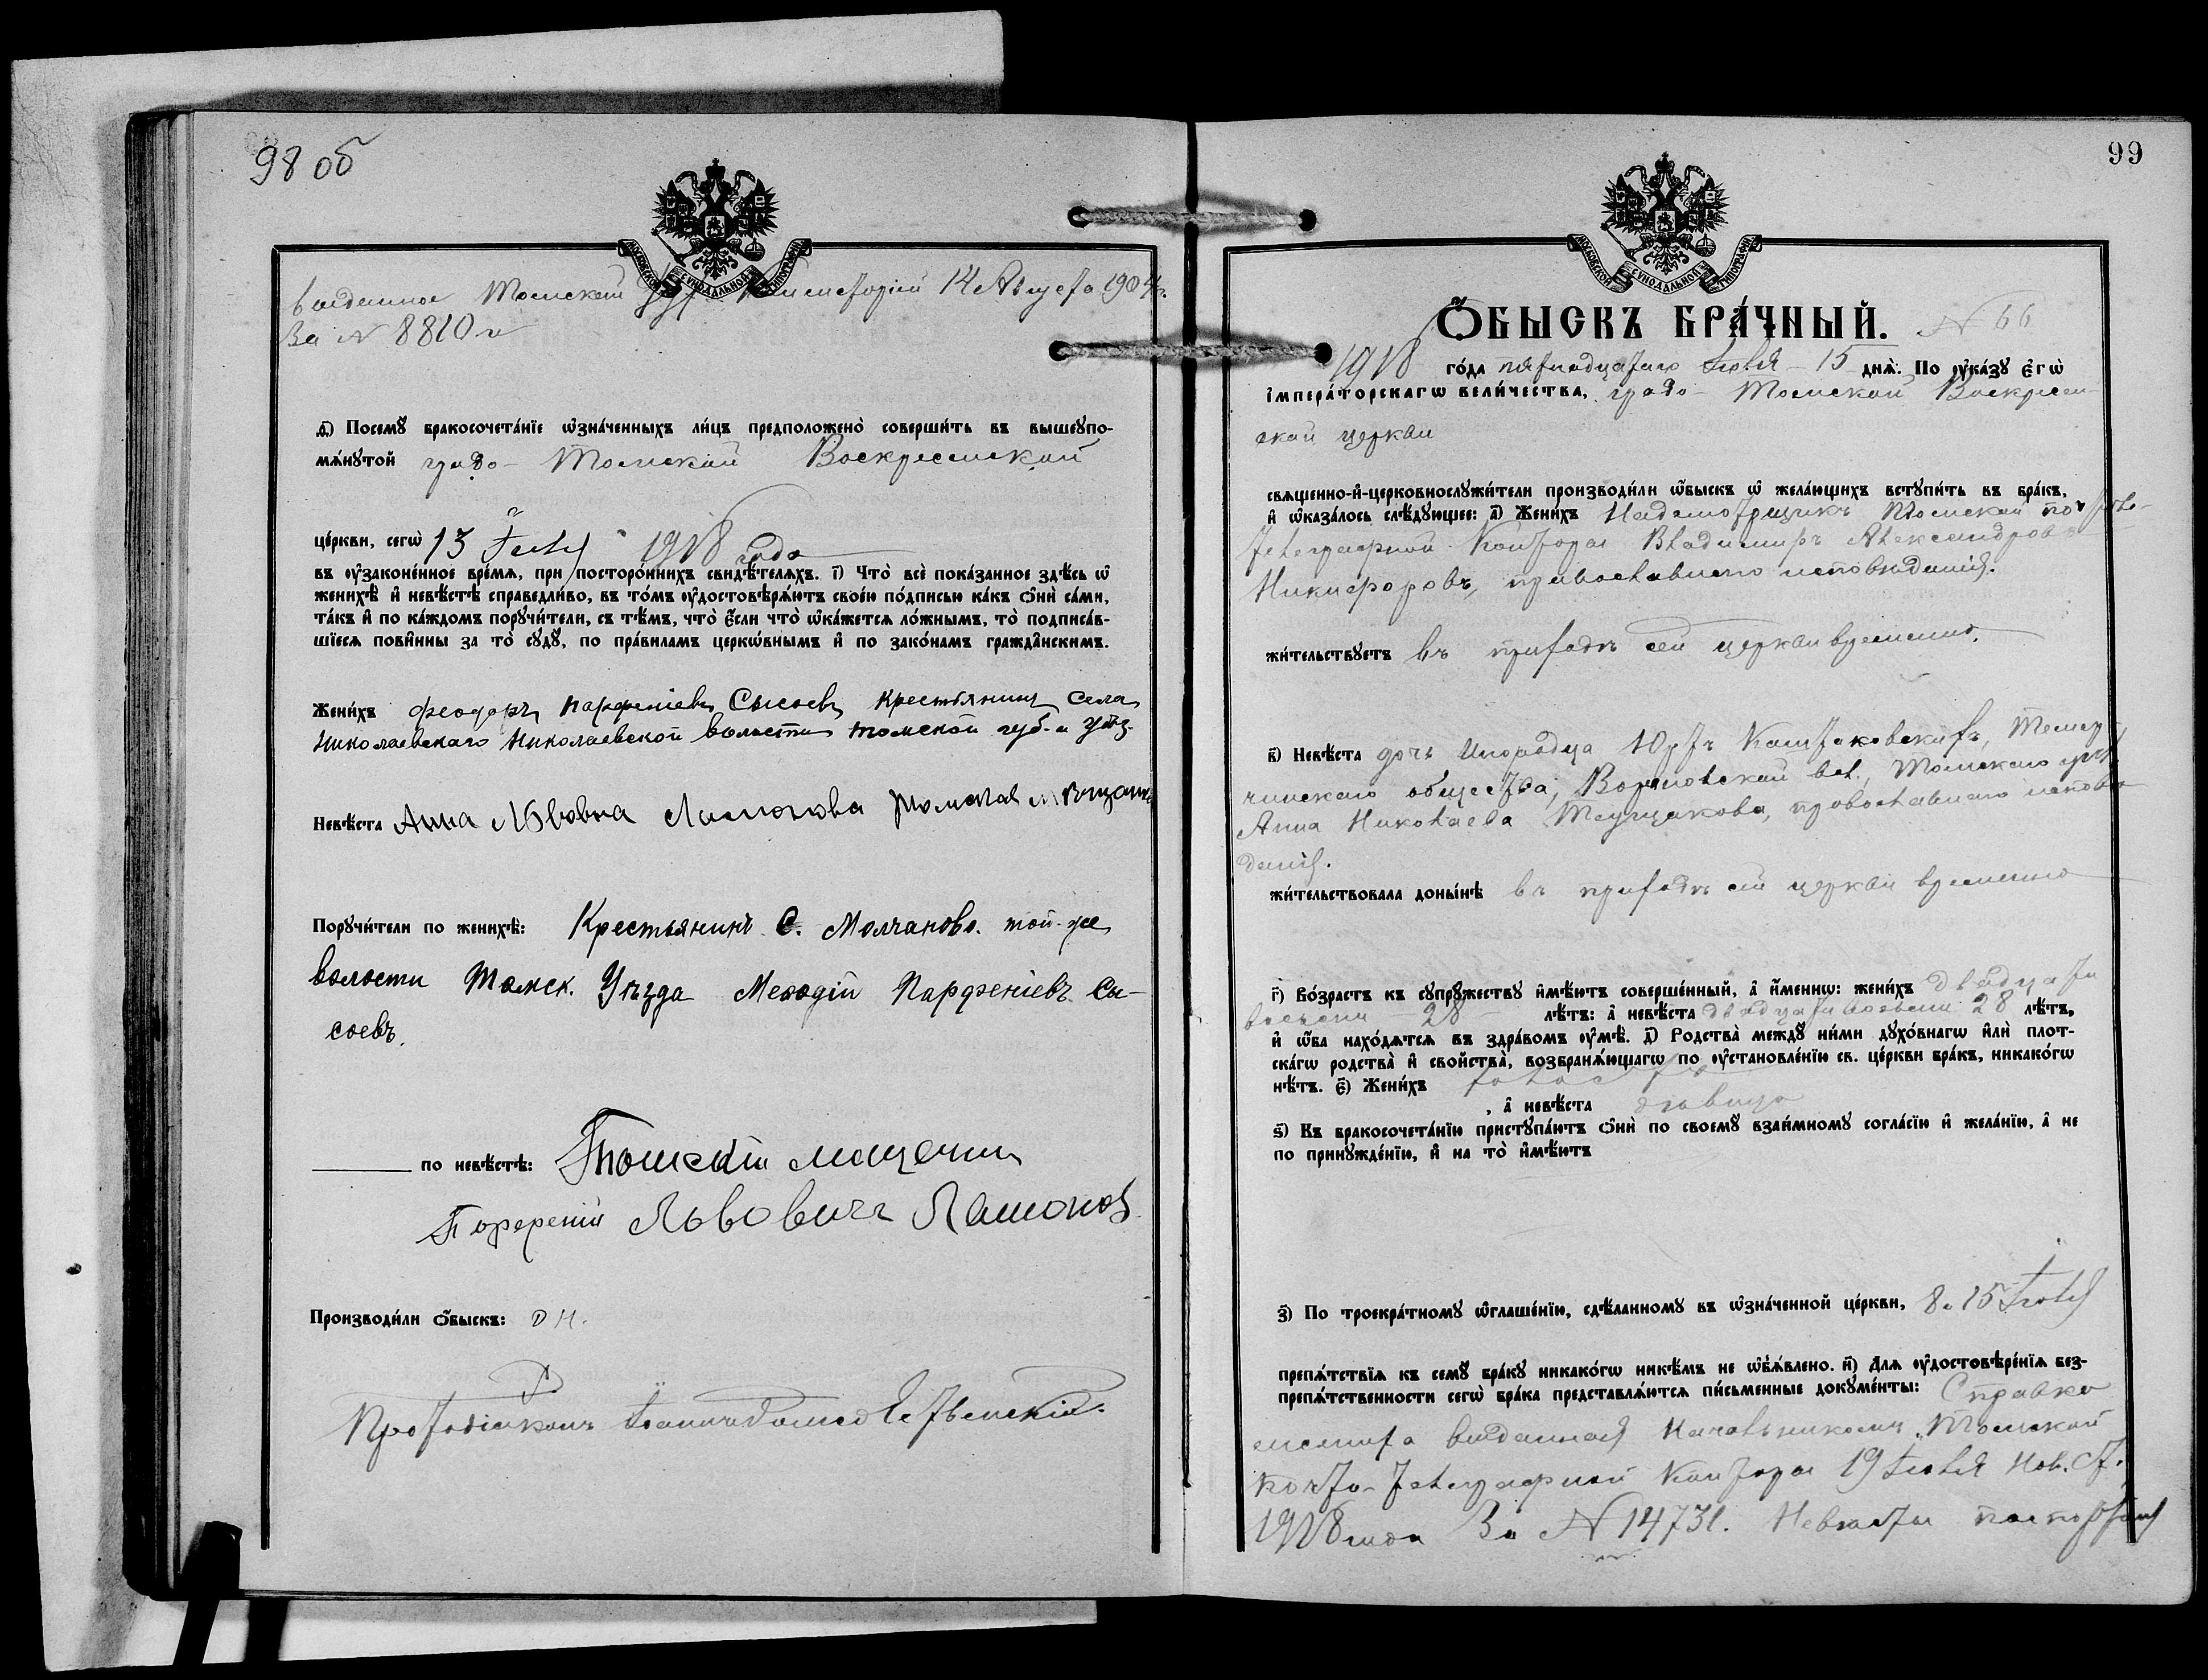 98 об
МОСКОВСКОЙ СѴНОДАЛЬНОЙ ТИПОГРАФІИ
выданное Томской Дух. Консисторіей 14 Августа 1904 г.
За № 8810 м
д҃) Посемꙋ̀ бракосочета́нїе ѡ҆зна́ченныхъ ли́цъ предположено̀ соверши́ть въ вышеꙋпо-
мѧ́нꙋтой градо-Томской Воскресенской
це́ркви, сегѡ̀ 15 Іюля 1918 года
въ ᲂу҆зако́не́нное вре́мѧ, при посторо́ннихъ свидѣ́телѧхъ. і҃) Что̀ всѐ пока́занное здѣ́сь ѡ҆
женихѣ̀ и҆ невѣ́стѣ справедли́во, въ то́мъ ᲂу҆достовѣрѧ́ютъ свое́ю по́дписью ка́къ ѻ҆нѝ са́ми,
та́къ и҆ по ка́ждомъ порꙋчи́тели, съ тѣ́мъ, что̀ є҆́сли что̀ ѡ҆ка́жетсѧ ло́жнымъ, то̀ подписа́в-
шїесѧ пови́нны за то̀ сꙋдꙋ̀, по пра́виламъ церко́внымъ и҆ по зако́намъ гражда́нскимъ.
Жени́хъ Феодоръ Парфеніевъ Сысоевъ крестьянинъ села
Николаевскаго Николаевской волости томской губ. и уѣз.
Невѣ́ста Анна Львовна Томская мѣщанка
Порꙋчи́тели по женихѣ̀: Крестьянинъ С. Молчаново. той-же
волости Томск. Уѣзда Меѳодій Парфеніевъ Сы-
соевъ.
по невѣ́стѣ: Томскій мещенин
Львовичъ
Производи́ли ѻ҆́быскъ: о Н.
Протодіаконъ
99
МОСКОВСКОЙ СѴНОДАЛЬНОЙ ТИПОГРАФІИ
Ѻ҆́БЫСКЪ БРА́ЧНЫЙ. № 66
1918 го́да пятнадцатаго Іюля - 15 днѧ̀. По ᲂу҆ка́зꙋ є҆гѡ̀
і҆мпера́торскагѡ вели́чества, градо-Томской Воскресен-
ской церкви
свѧще́нно-и҆-церковнослꙋжи́тели производи́ли ѻ҆́быскъ ѡ҆ жела́ющихъ встꙋпи́ть въ бра́къ,
и҆ ѡ҆каза́лось слѣ́дꙋющее: а҃) Жени́хъ Надсмотрщикъ Томской почтово-
телеграфной Конторы Владимиръ Александровъ
Никифоровъ, православнаго исповѣданія.
жи́тельствꙋетъ въ приходѣ сей церкви временно.
в҃) Невѣ́ста дочь Инородца Юртъ Темер-
чинскаго общества, вол., Томскаго уѣз.
Анна Николаева Тещакова, православнаго исповѣ-
данія.
жи́тельствовала доны́нѣ въ приходѣ сей церкви временно
г҃) Во́зрастъ къ сꙋпрꙋ́жествꙋ и҆мѣ́ютъ соверше́нный, а҆ и҆́меннѡ: жени́хъ двадцати
восьми 28 лѣ́тъ: а҆ невѣ́ста двадцати восьми 28 лѣ́тъ,
и҆ ѻ҆́ба нахо́дѧтсѧ въ здра́вомъ ᲂу҆мѣ̀. д҃) Родства̀ междꙋ ни́ми дꙋхо́внагѡ и҆лѝ плот-
ска́гѡ родства̀ и҆ сво́йства̀, возбранѧ́ющагѡ по ᲂу҆становле́нїю св. це́ркви бра́къ, никако́гѡ
нѣ́тъ. є҃) Жени́хъ холостъ
, а҆ невѣ́ста дѣвица
ѕ҃) Къ бракосочета́нїю пристꙋпа́ютъ ѻ҆нѝ по своемꙋ̀ взаи́мномꙋ согла́сїю и҆ жела́нїю, а҆ не
по принꙋжде́нїю, и҆ на то̀ и҆мѣ́ютъ
з҃) По троекра́тномꙋ ѡ҆глаше́нїю, сдѣ́ланномꙋ въ ѡ҆зна́ченной це́ркви, 8. 15 Іюля
препѧ́тствїѧ къ семꙋ̀ бра́кꙋ никако́гѡ никѣ́мъ не ѡ҆бъѧ́влено. и҃) Длѧ ᲂу҆достовѣре́нїѧ без-
препѧ́тственности сегѡ̀ бра́ка представлѧ́ютсѧ пи́сьменные докꙋме́нты: Справка
жениха выданная Начальникомъ Томской
Почто-телеграфной Конторы 19 Іюля Нов. ст.
1918 года За № 14731. Невѣсты